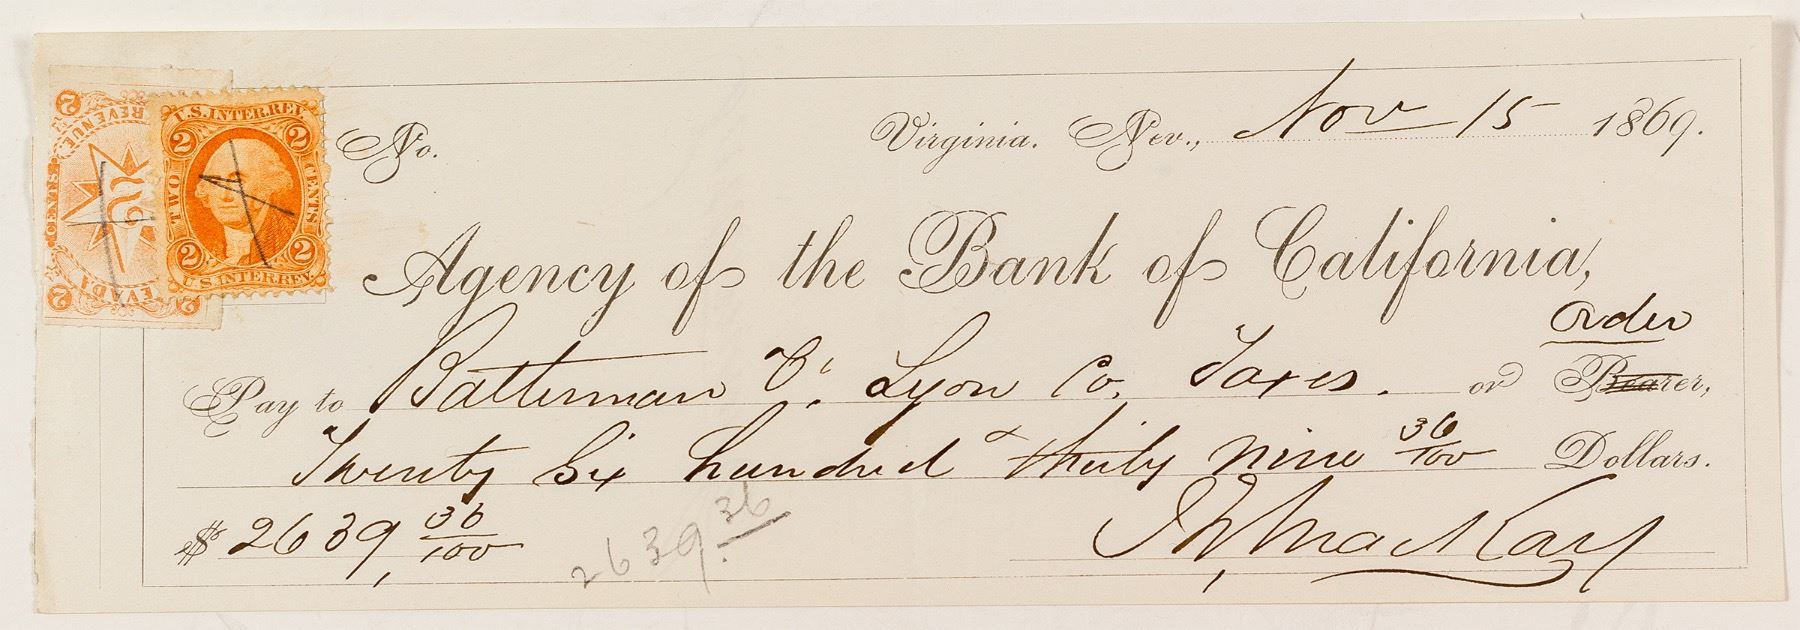 2 REVENUE 2
CENTS
NEVADA
2 2
U.S. INTER. REV.
2 2
TWO CENTS
2 2
U.S. INTER. REV.
No.
Virginia. Nev., Nov 15 1869.
Agency of the Bank of California,
Order
Pay to Batterman Lyon Co. Taxes. or Bearer,
Twenty Six hundred + thirty nine 36/100 Dollars.
$ 2639, 36/100
2639.36
Jno. W. Mackay